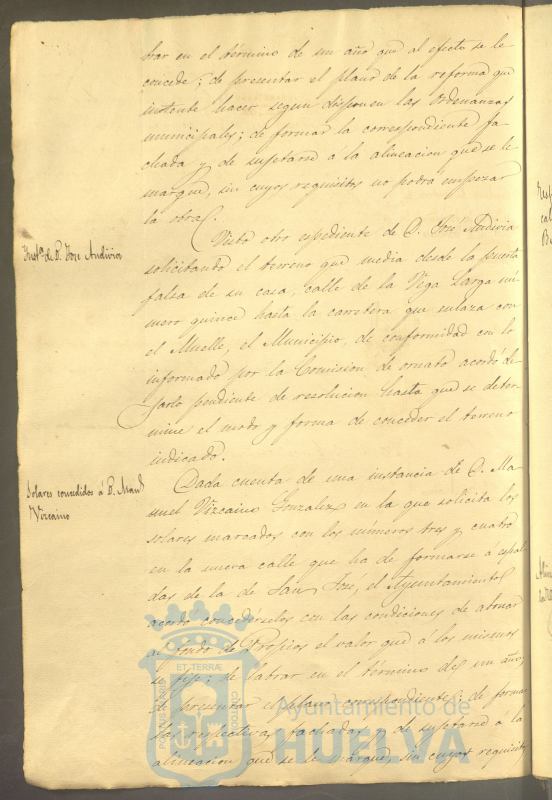 brar en el término de un año que al efecto se le
concede; de presentar el plano de la reforma que
intente hacer segun disponen las Ordenanzas
municipales; de formar la correspondiente fa
chada y de sujetarse á la alineacion que se le
marque, sin cuyos requisitos no podrá empezar
la obra.
Inst.ª de D. Jose Andivia
Visto otro espediente de D. José Andivia
solicitando el terreno que media desde la puerta
falsa de su casa, calle de la Vega Larga nú
mero quince hasta la carretera que enlaza con
el Muelle, el Municipio, de conformidad con lo
informado por la Comision de ornato acordó de
jarlo pendiente de resolucion hasta que se deter
mine el modo y forma de conceder el terreno
indicado.
Solares concedidos á D. Man.l
Vizcaino
Dada cuenta de una instancia de D. Ma
nuel Vizcaino Gonzalez en la que solicita los
solares marcados con los números tres y cuatro
en la nueva calle que ha de formarse á espal
das de la de San Jose, el Ayuntamiento
acordó concedérselos con las condiciones de abonar
al fondo de Propios el valor que á los mismos
se fije; de labrar en el término de un año;
de presentar el plano correspondiente; de formar
las respectivas fachadas y de sujetarse á la
alineacion que se le marque, sin cuyos requisitos
PORTUS MARIS
ET TERRÆ
CUSTODIA
Ayuntamiento de
HUELVA